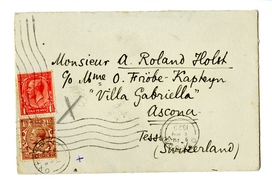 Monsieur A. Roland Holst
c/o Mme O. Fröbe-Kapteyn
"Villa Gabriella"
Ascona
Tessin
(Switzerland)